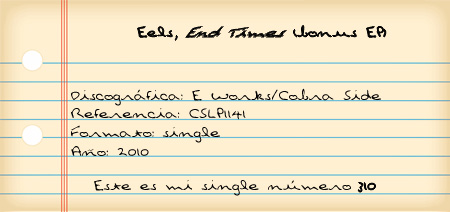 Eels, End Times bonus EP
Discográfica: E Works/Cobra Side
Referencia: CSLP1141
Formato: single
Año: 2010
Este es mi single número 310